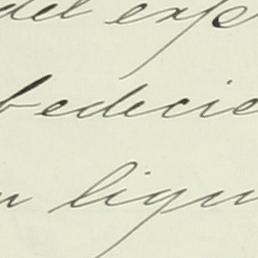 del exp
bedecie
n liqu